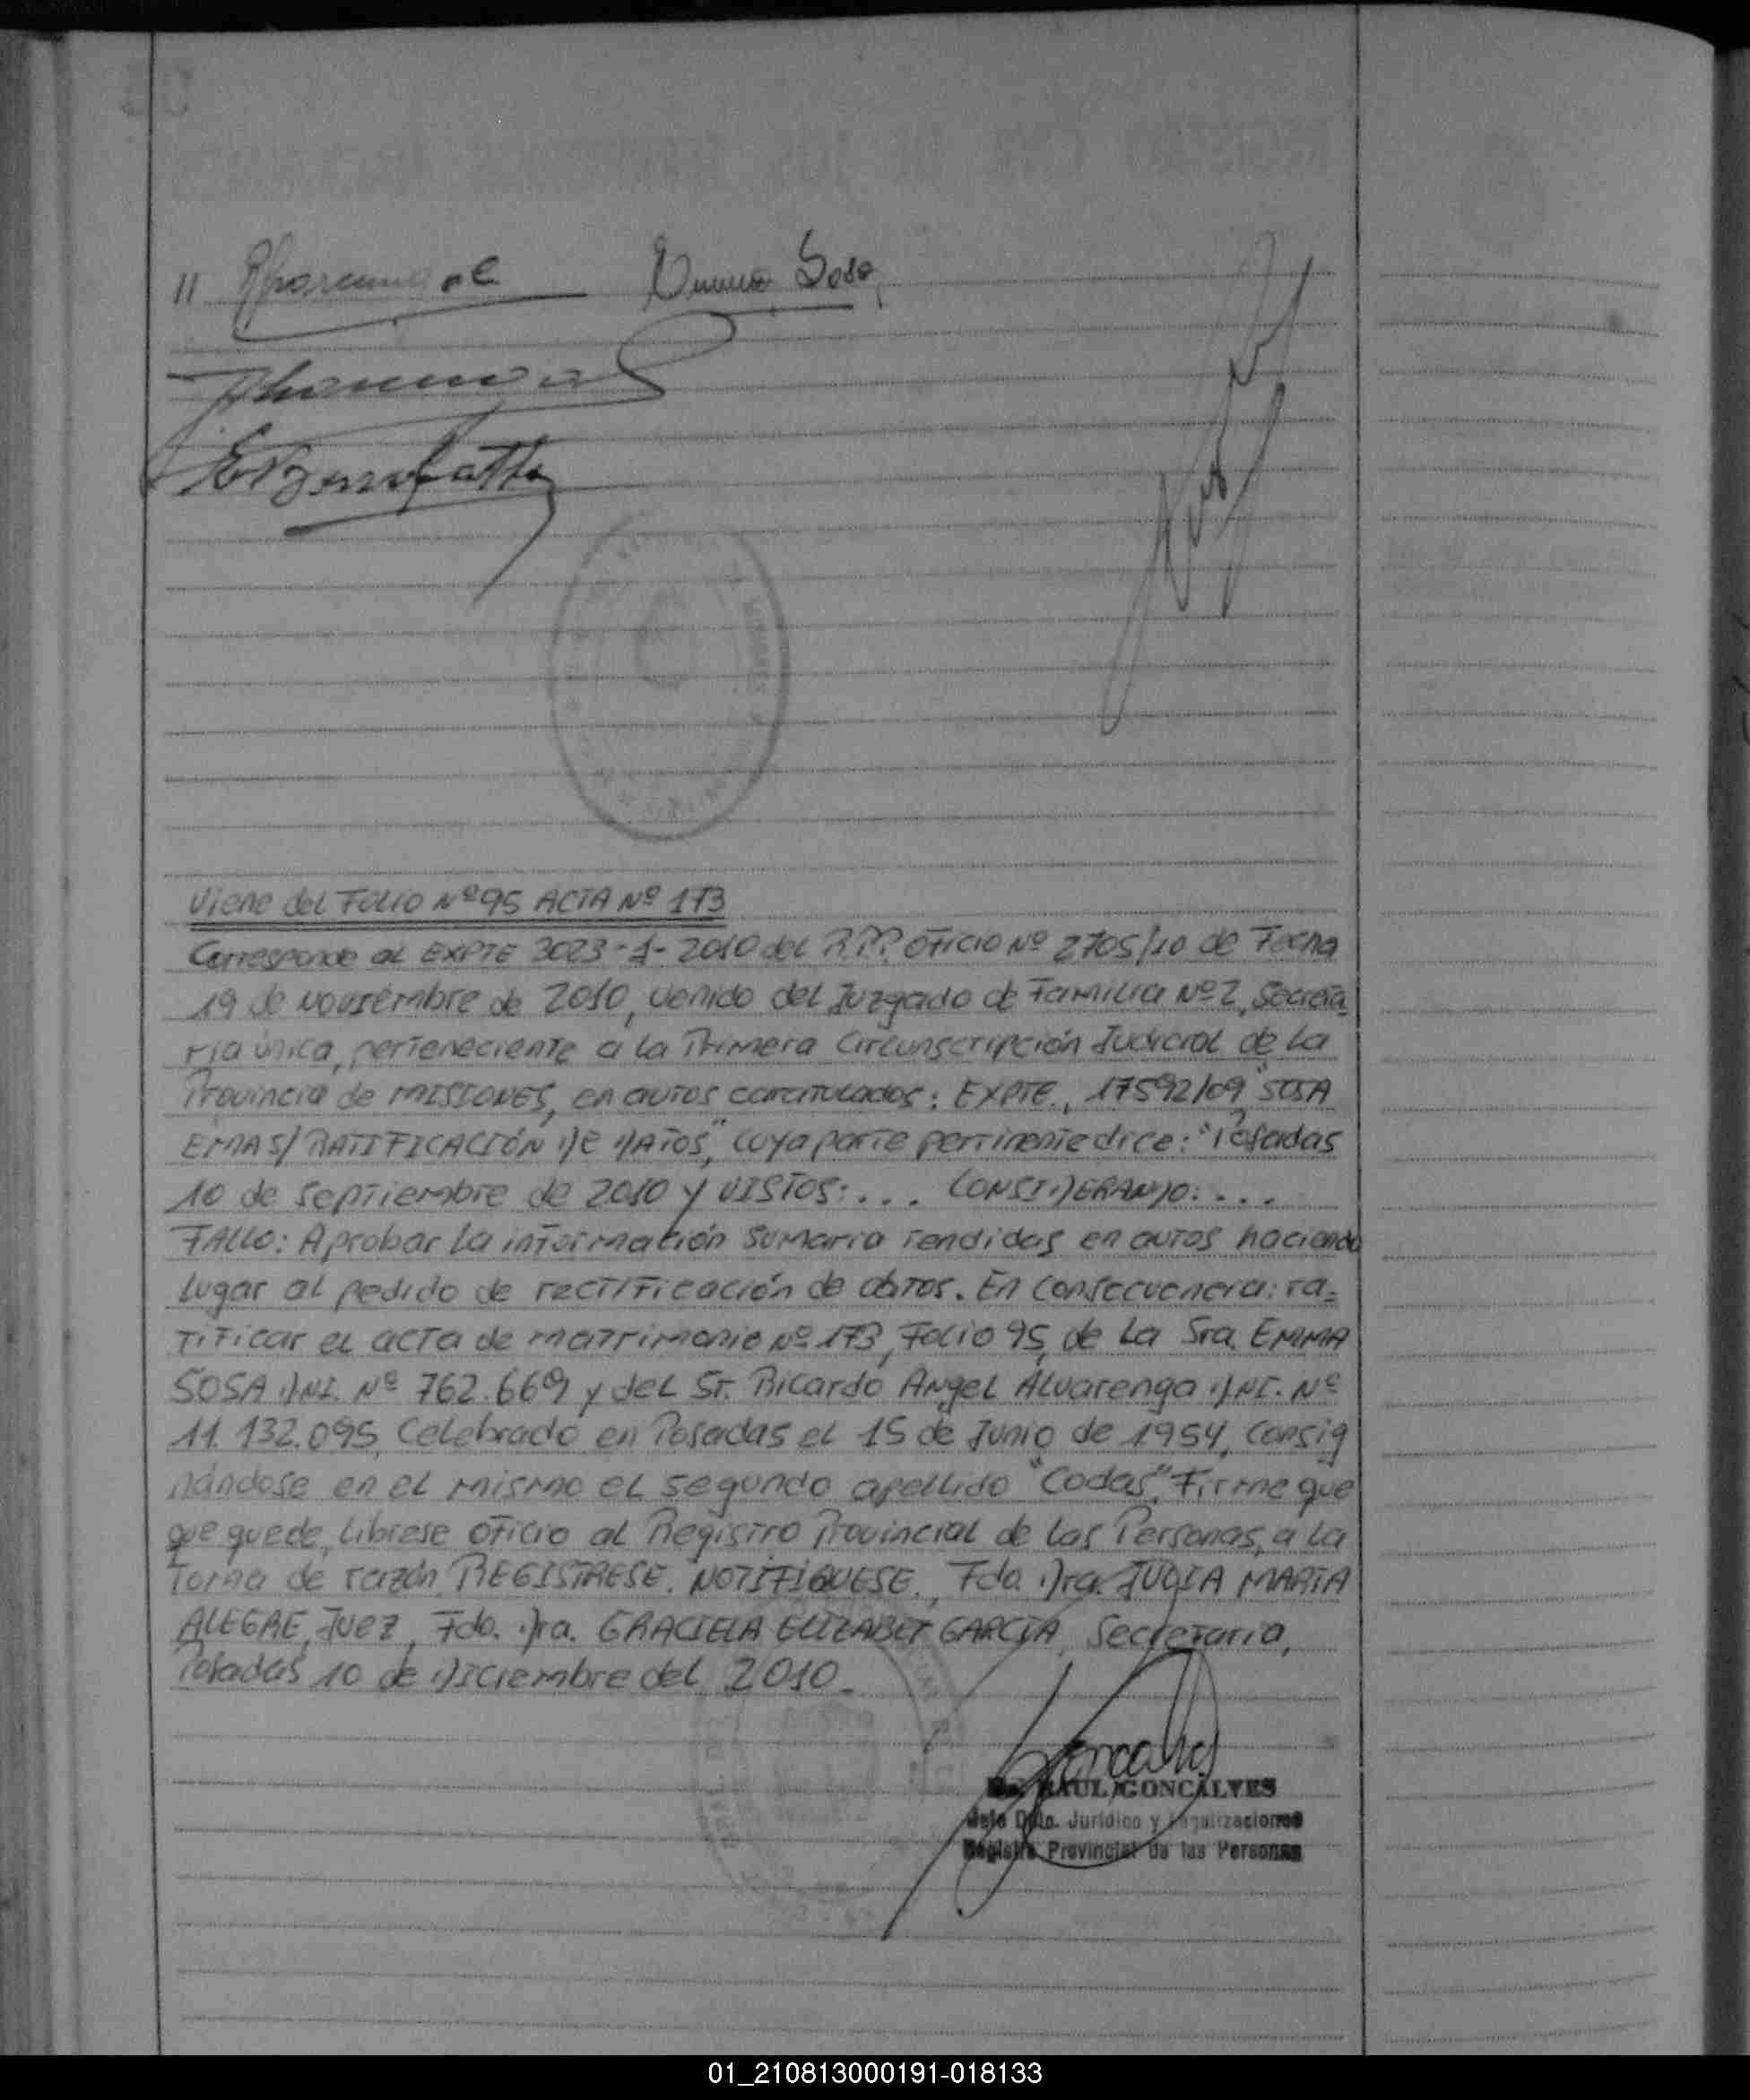 11
Emma Sosa
Viene del Folio Nº 95 ACTA Nº 173
Corresponde al EXPTE 3023-A-2010 del R.P.P. Oficio Nº 2705/10 de Fecha
19 de Noviembre de 2010, venido del Juzgado de Familia Nº 2, Secreta
ria única, perteneciente a la Primera Circunscripción Judicial de la
Provincia de MISIONES, en autos caratulados: EXPTE. 17592/09 "SOSA
EMMA S/ RATIFICACIÓN DE DATOS", cuya parte pertinente dice: "Posadas
10 de Septiembre de 2010 y VISTOS:... CONSIDERANDO:...
FALLO: Aprobar la información sumaria rendidas en autos haciendo
lugar al pedido de rectificación de datos. En Consecuencia: ra-
tificar el acta de matrimonio Nº 173, Folio 95, de la Sra. EMMA
SOSA DNI. Nº 762.669 y del Sr. Ricardo Angel Alvarenga DNI. Nº
11.132.095, Celebrado en Posadas el 15 de Junio de 1954, Consig
nándose en el mismo el segundo apellido "Codas". Firme que
que quede, librese oficio al Registro Provincial de las Personas, a la
Toma de razón. REGISTRESE. NOTIFIQUESE. Fdo. Dra. JULIA MARTA
ALEGRE, Juez, Fdo. Dra. GRACIELA ELIZABET GARCIA, Secretaria,
Posadas 10 de Diciembre del 2010.
RAUL GONCALVES
Jefe Dpto. Jurídico y Legalizaciones
Registro Provincial de las Personas
01_210813000191-018133